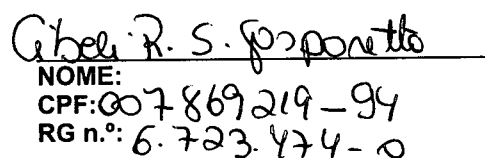 Cibeli R. S. Gosponetto
NOME:
CPF: 007869219-94
RG n.º: 6.723.474-0